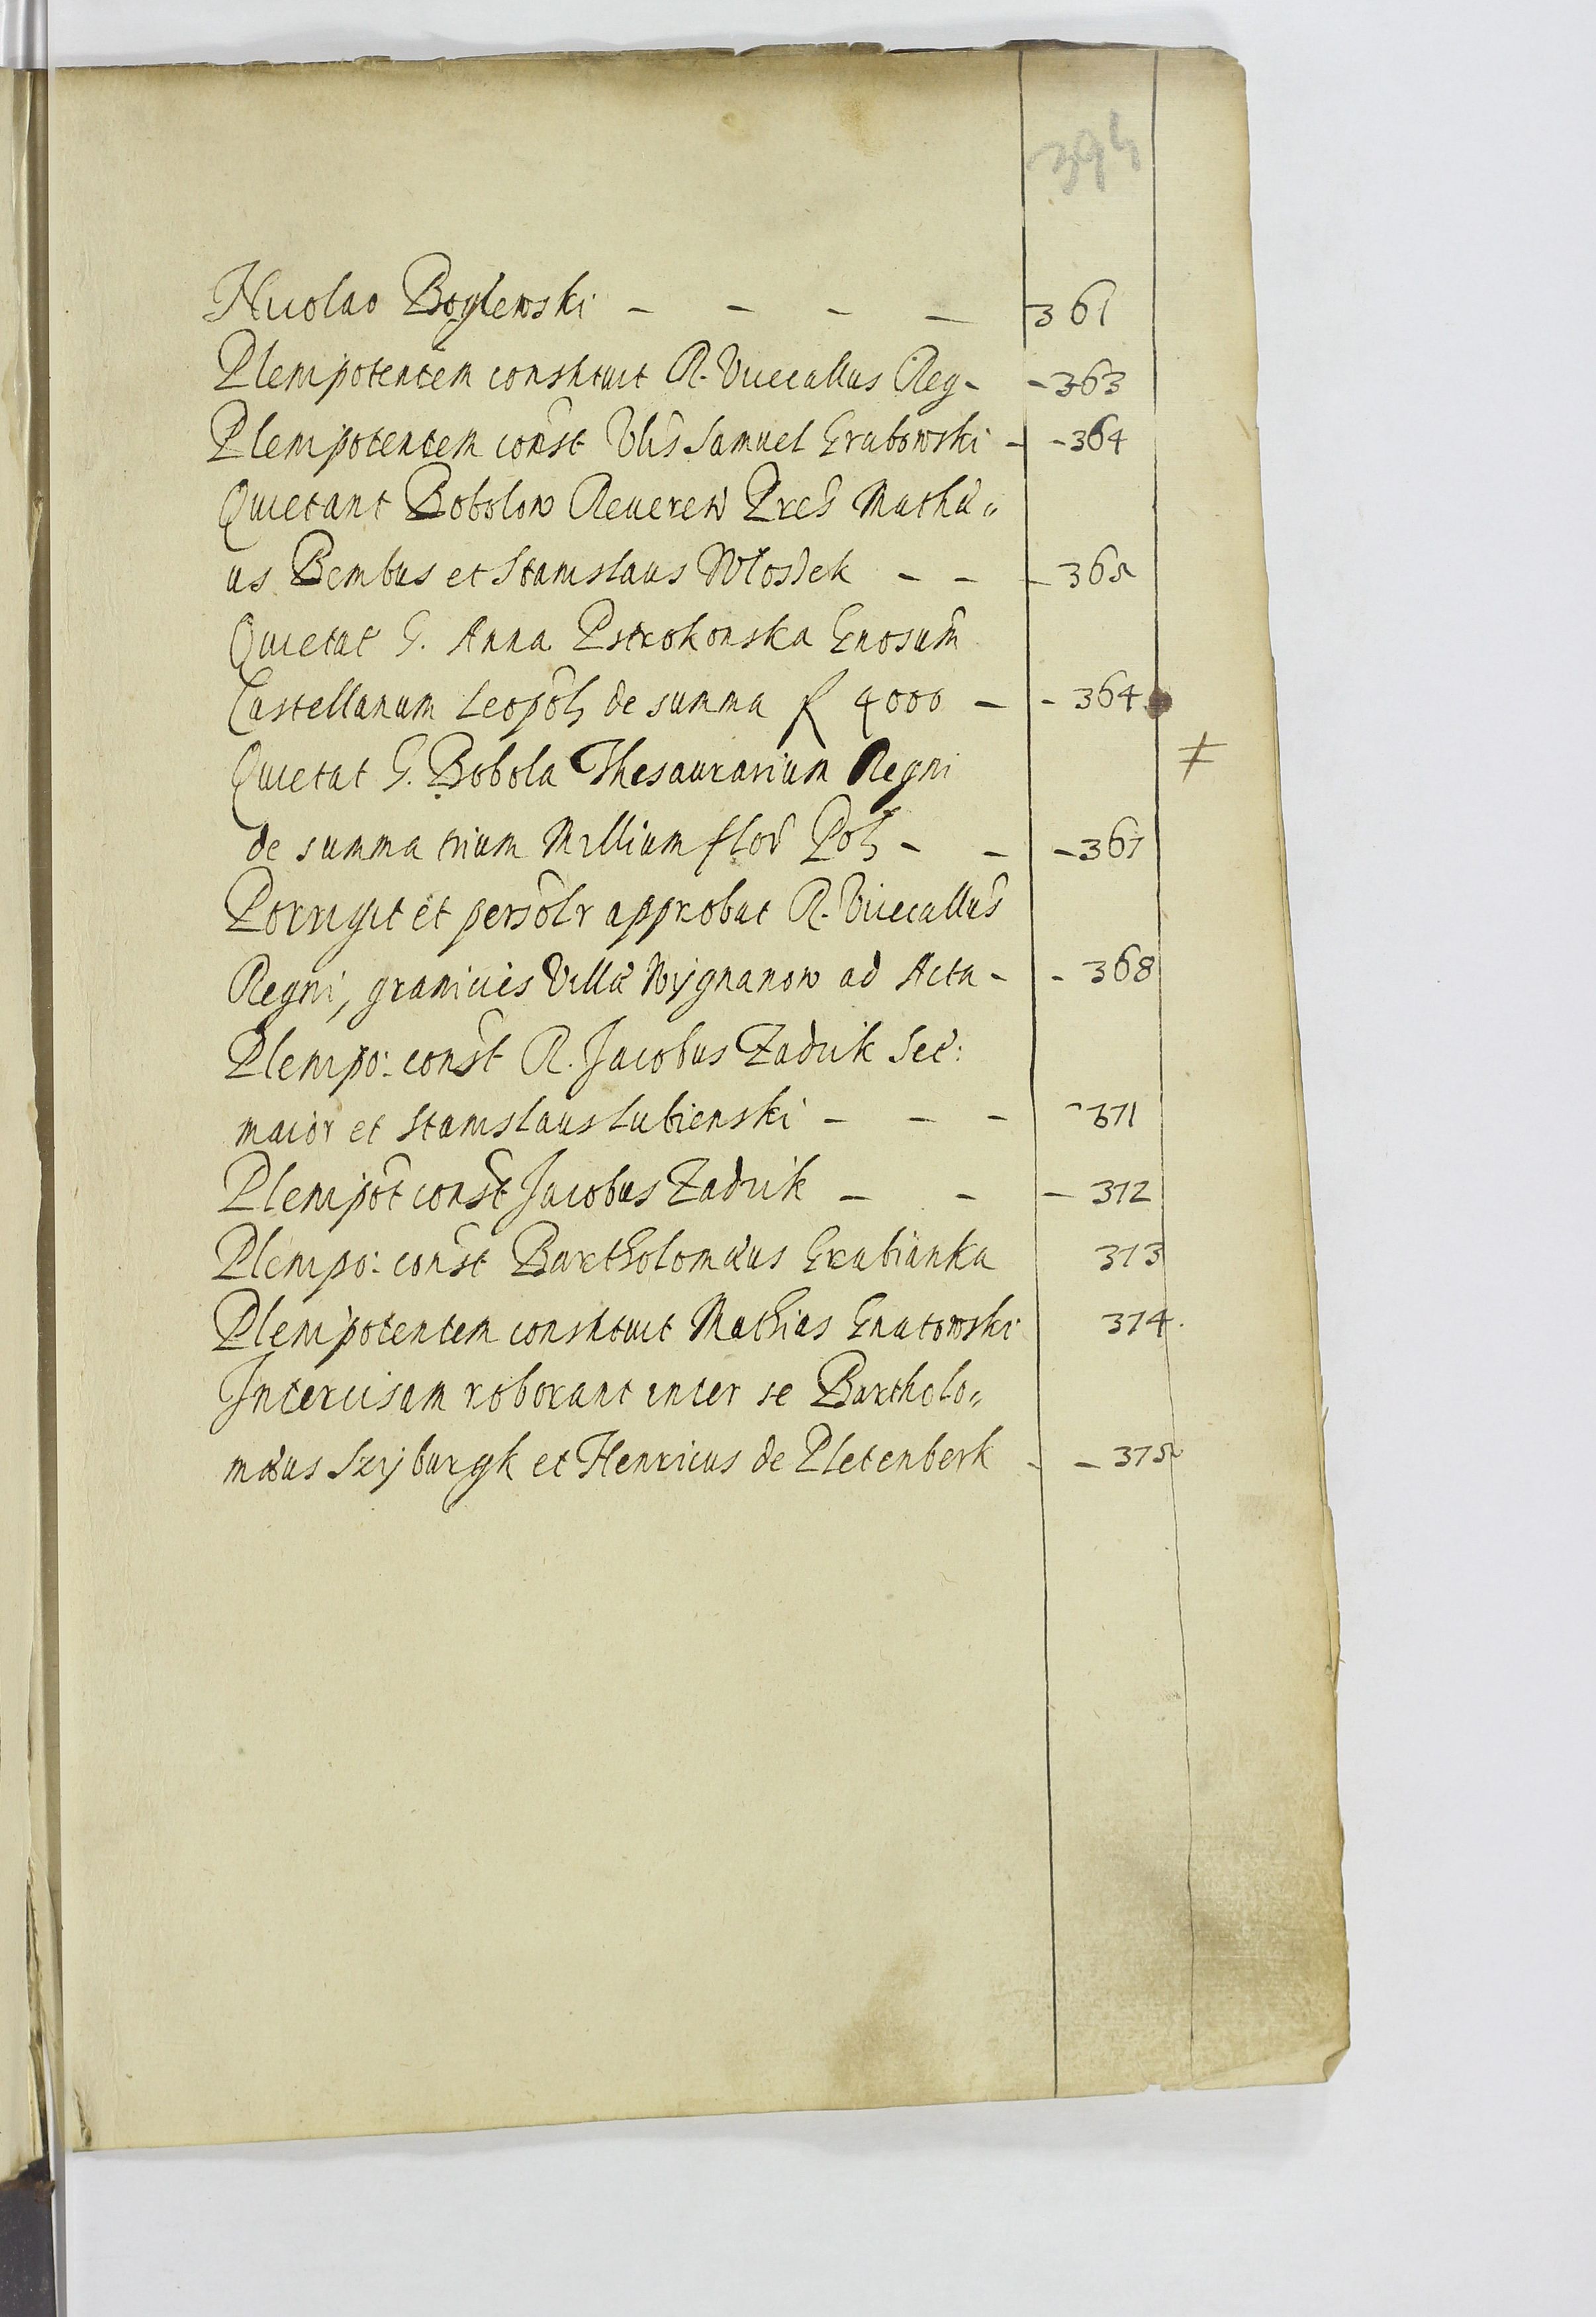 394
Nicolao Boglewski - - - - 361
Plenipotentem constituit R. Vicecallus Reg - - 363
Plenipotentem const Vlis Samuel Grabowski - - 364
Quietant Bobolow Reueren Pres Mathæ„
us Bembus et Stanislaus Włodek - - - 365
Quietat G. Anna Pstrokonska Gnosum
Castellanum Leopol de summa f 4000 - - 364
Quietat G. Bobola Thesaurarium Regni
de summa trium Millium flor Pol - - - 367
Porrigit et personlr approbat R. Vicecallus
Regni, granicies Villæ Wygnanow ad Acta - - 368
≠
Plenipo: const R. Jacobus Zadzik Sec:
maior et Stanislaus Lubienski - - - - 371
Plenipot const Jacobus Zadzik - - - 372
Plenipo: const Bartholomæus Grabianka 373
Plenipotentem constituit Mathias Gnatowski 374.
Intercisam roborant inter se Bartholo„
mæus Szyburgk et Henricus de Pletenberk - - 375